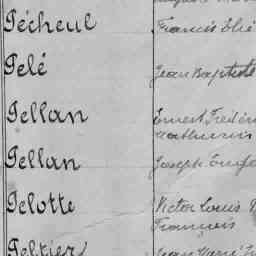 Pécheul Francis Elie
Pelé Jean Baptiste
Pellan Ernest
Mathurin
Pellan Joseph
Pelotte Victor Louis
François
Peltier Jean